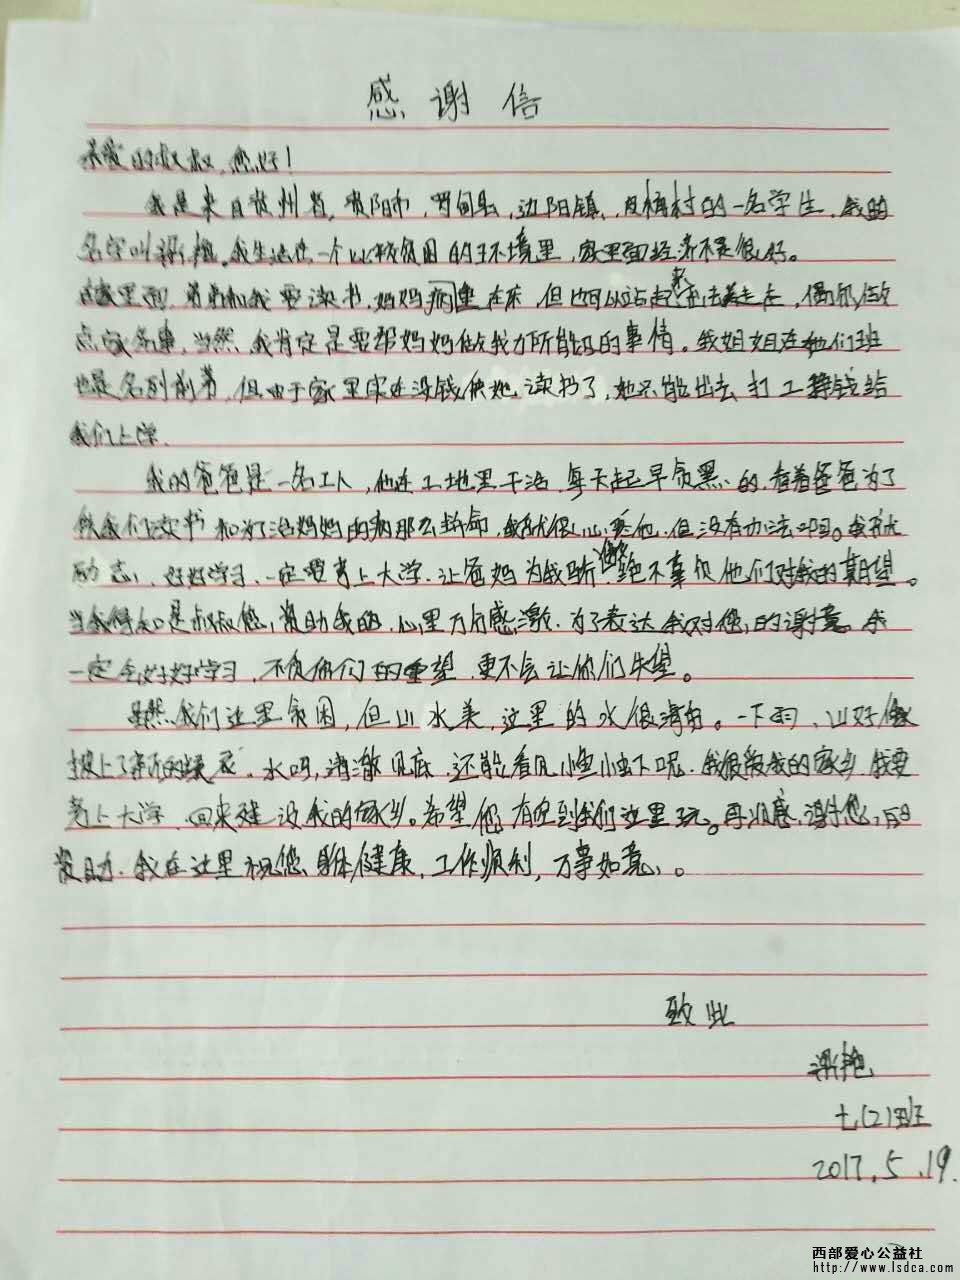 感谢信
亲爱的叔叔，您好！
我是来自贵州省，贵阳市，罗甸县，边阳镇，村的一名学生，我的
名字叫。我生活在一个比较贫困的环境里，家里面经济不是很好。
在家里面，弟弟和我要读书，妈妈病重在床，但以站起来走走，偶尔做
点家务事，当然，我肯定是要帮妈妈做我力所能及的事情。我姐姐在她们班
也是名列前茅，但由于家里实在没钱供她读书了，她只能出去打工挣钱给
我们上学。
我的爸爸是一名工人，他在工地里干活，每天起早贪黑的，看着爸爸为了
供我们读书和为了治妈妈的病那么拼命，我很心疼他，但没有办法啊。我
励志，好好学习，一定要考上大学，让爸妈为我骄傲，绝不辜负他们对我的期望。
当我得知是叔叔您，资助我的，心里万分感激，为了表达我对您的谢意，我
一定会好好学习，不负你们的重望，更不会让你们失望。
虽然我们这里贫困，但山水美，这里的水很清的。一下雨，山好像
披上了新的绿衣，水吗，清澈见底，还能看见小鱼小虾呢，我很爱我的家乡，我要
考上大学，回来建设我的家乡。希望您有空到我们这里玩。再次感谢您，的
资助，我在这里祝您，身体健康，工作顺利，万事如意，。
致此
七(2)班
2017.5.19.
西部爱心公益社
http://www.lsdca.com/